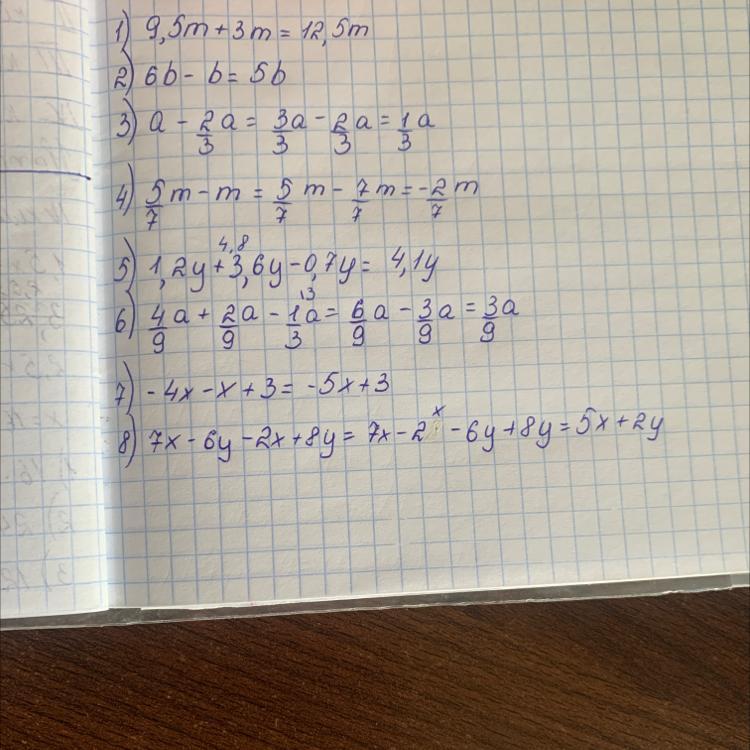 1) 9,5m + 3m = 12,5m
2) 6b - b = 5b
3) a - 2/3 a = 3/3 a - 2/3 a = 1/3 a
4) 5/7 m - m = 5/7 m - 7/7 m = -2/7 m
4,8
5) 1,2y + 3,6y - 0,7y = 4,1y
6) 4/9 a + 2/9 a - 1/3 a \3 = 6/9 a - 3/9 a = 3/9 a
7) -4x - x + 3 = -5x + 3
8) 7x - 6y - 2x + 8y = 7x - 2x - 6y + 8y = 5x + 2y